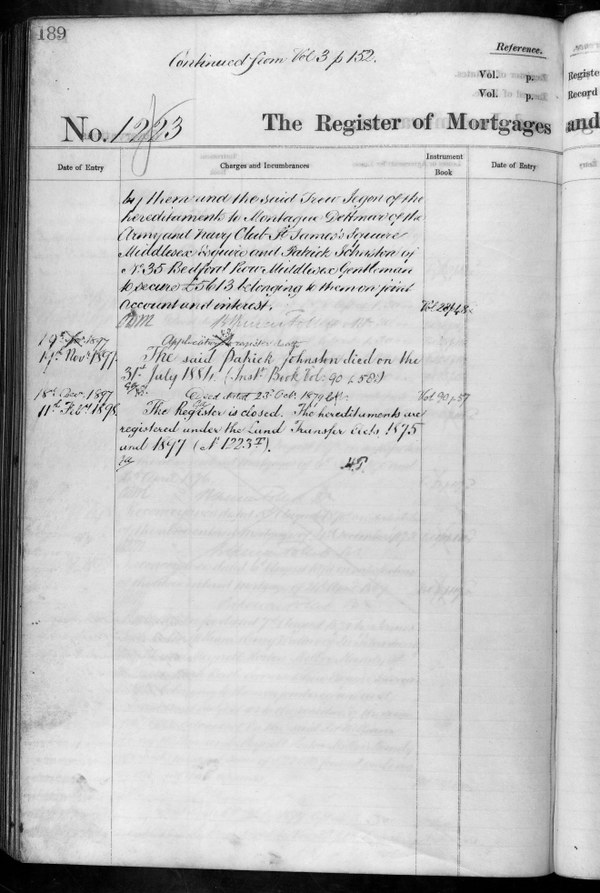 189
Continued from Vol 3 p 152.
Reference.
Vol. p.
Vol. p.
No. 1223
The Register of Mortgages and
Registe
Record
Date of Entry
Charges and Incumbrances
Instrument Book
Date of Entry
by them and the said Trew Jegon of the
hereditaments to Montague Dettmar of the
Army and Navy Club St James's Square
Middlesex Esquire and Patrick Johnston of
No. 35 Bedford Row Middlesex Gentleman
to secure £5613 belonging to them on joint
account and interest.
Vol 28
19th 1897
Application to register
17th Novr 1897.
The said Patrick Johnston died on the
31st July 1884. (Instt Book Vol. 90 p 58.)
18th 1897
Deed dated 23rd Oct. 1879
Vol 90 p 57
11th Feby 1898.
The Register is closed. The hereditaments are
registered under the Land Transfer Acts 1875
and 1897 (No 1223 ).